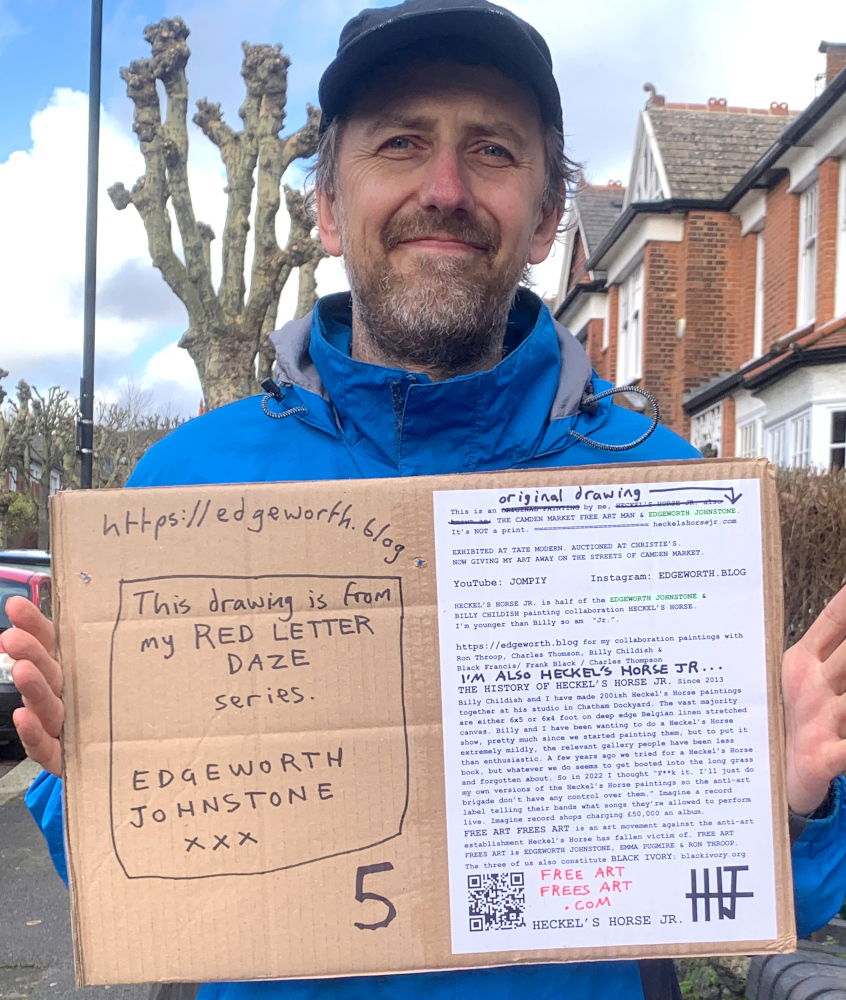 https://edgeworth.blog
This drawing is from
my RED LETTER
DAZE
series.
EDGEWORTH
JOHNSTONE
xxx
5
original drawing
This is an ORIGINAL PAINTING by me, HECKEL'S HORSE JR. also
known as THE CAMDEN MARKET FREE ART MAN & EDGEWORTH JOHNSTONE.
It's NOT a print. ======================== heckelshorsejr.com
EXHIBITED AT TATE MODERN. AUCTIONED AT CHRISTIE'S.
NOW GIVING MY ART AWAY ON THE STREETS OF CAMDEN MARKET.
YouTube: JOMPIY Instagram: EDGEWORTH.BLOG
HECKEL'S HORSE JR. is half of the EDGEWORTH JOHNSTONE &
BILLY CHILDISH painting collaboration HECKEL'S HORSE.
I'm younger than Billy so am "Jr.".
https://edgeworth.blog for my collaboration paintings with
Ron Throop, Charles Thomson, Billy Childish &
Black Francis/ Frank Black / Charles Thompson
I'M ALSO HECKEL'S HORSE JR...
THE HISTORY OF HECKEL'S HORSE JR. Since 2013
Billy Childish and I have made 200ish Heckel's Horse paintings
together at his studio in Chatham Dockyard. The vast majority
are either 6x5 or 6x4 foot on deep edge Belgian linen stretched
canvas. Billy and I have been wanting to do a Heckel's Horse
show, pretty much since we started painting them, but to put it
extremely mildly, the relevant gallery people have been less
than enthusiastic. A few years ago we tried for a Heckel's Horse
book, but whatever we do seems to get booted into the long grass
and forgotten about. So in 2022 I thought "F**k it. I'll just do
my own versions of the Heckel's Horse paintings so the anti-art
brigade don't have any control over them." Imagine a record
label telling their bands what songs they're allowed to perform
live. Imagine record shops charging £50,000 an album.
FREE ART FREES ART is an art movement against the anti-art
establishment Heckel's Horse has fallen victim of. FREE ART
FREES ART is EDGEWORTH JOHNSTONE, EMMA PUGMIRE & RON THROOP.
The three of us also constitute BLACK IVORY: blackivory.org
FREE ART
FREES ART
.COM
HECKEL'S HORSE JR.